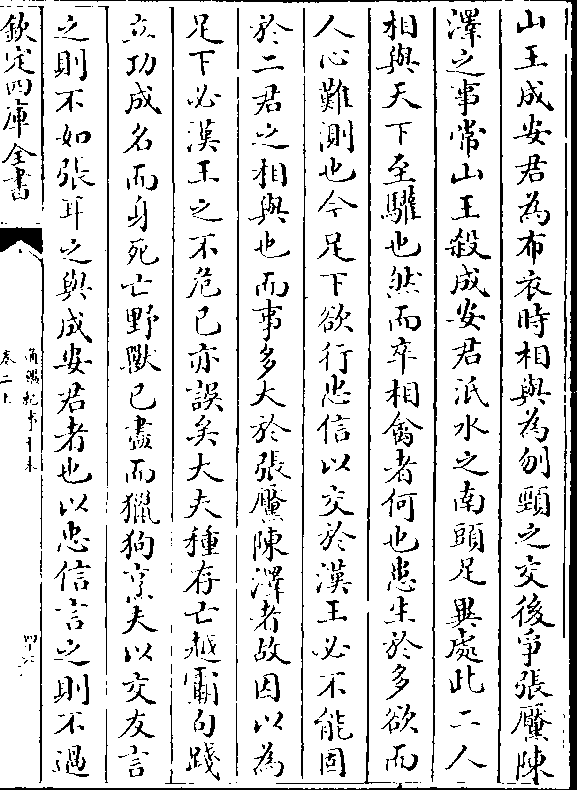 山王成安君為布衣時相與為刎頸之交後爭張黶陳
澤之事常山王殺成安君泜水之南頭足異處此二人
相與天下至驩也然而卒相禽者何也患生於多欲而
人心難測也今足下欲行忠信以交於漢王必不能固
於二君之相與也而事多大於張黶陳澤者故因以為
足下必漢王之不危已亦誤矣大夫種存亡越霸句踐
立功成名而身死亡野獸已盡而獵狗烹夫以交友言
之則不如張耳之與成安君者也以忠信言之則不過
欽定四庫全書
通鑑紀事本末
卷二上